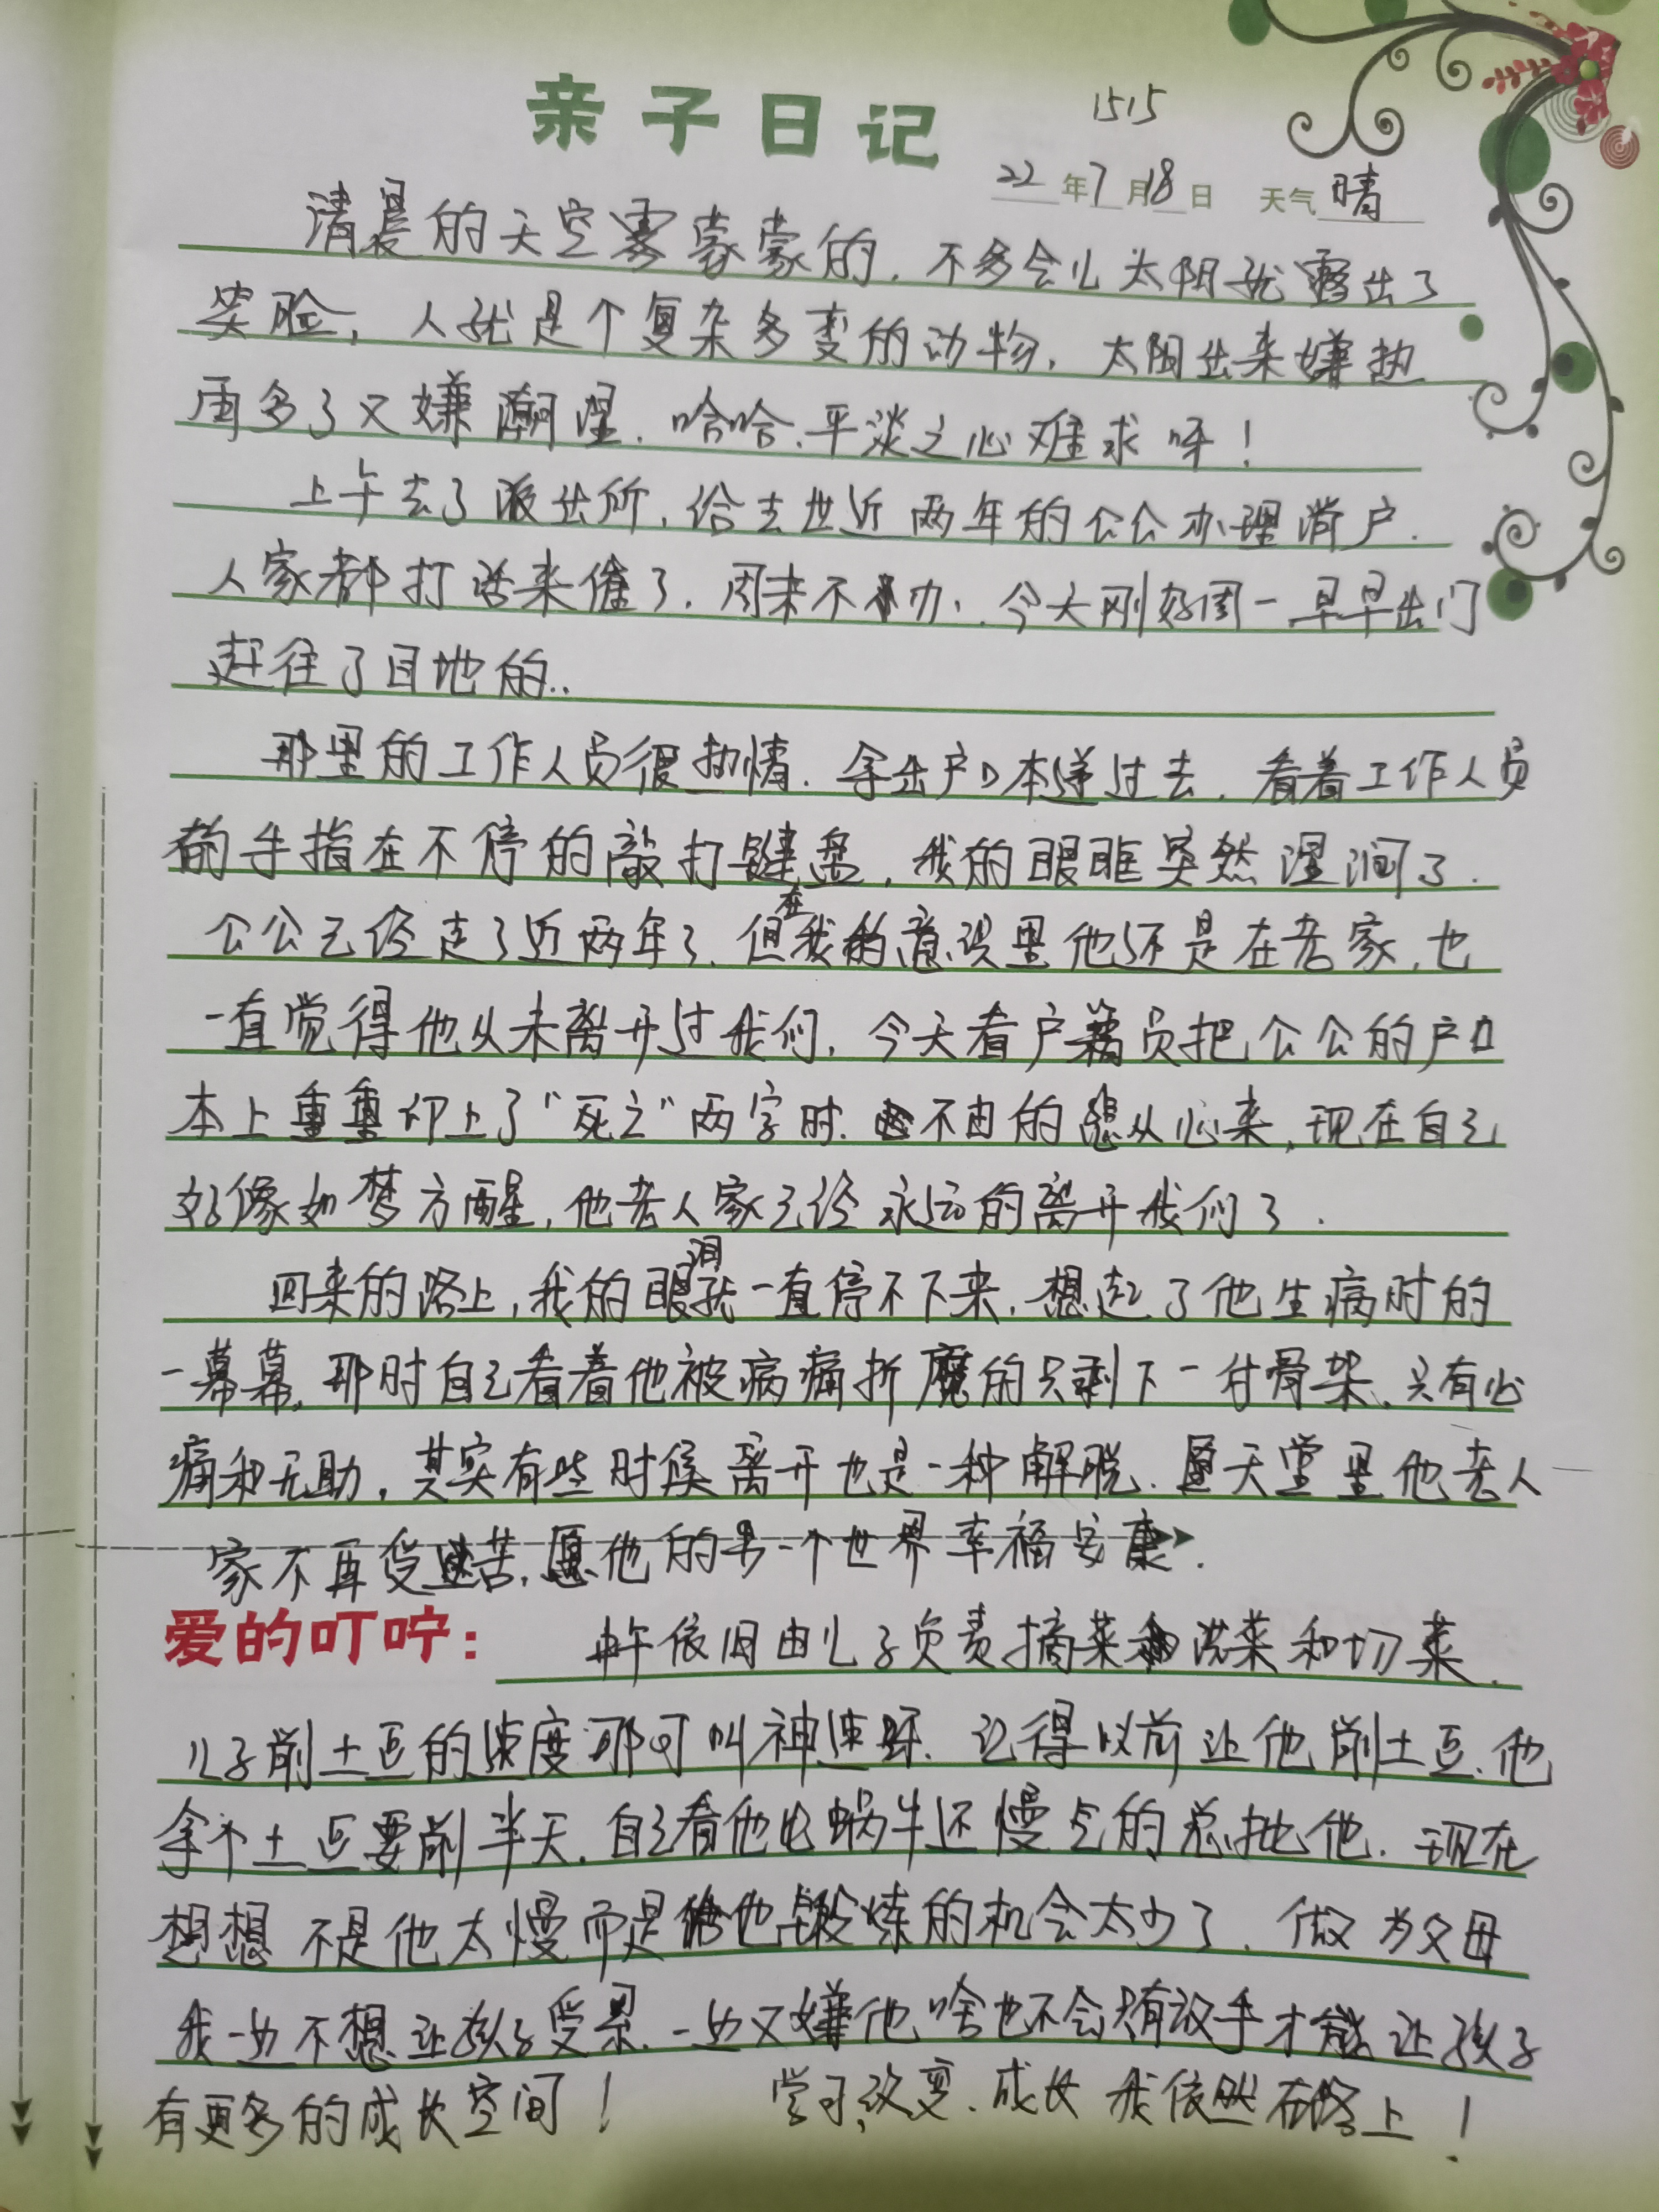 亲子日记
1515
22年7月18日 天气晴
清晨的天空雾蒙蒙的，不多会儿太阳就露出了
笑脸，人就是个复杂多变的动物，太阳出来嫌热
雨多了又嫌潮湿，哈哈，平淡之心难求呀！
上午去了派出所，给去世近两年的公公办理消户．
人家都打话来催了，周末不办，今天刚好周一早早出门
赶往了目地的..
那里的工作人员很热情．拿出户口本递过去，看着工作人员
的手指在不停的敲打键盘，我的眼眶突然湿润了．
公公已经走了近两年了，但在我的意识里他还是在老家，也
一直觉得他从未离开过我们，今天看户籍员把公公的户口
本上重重印上了“死亡”两字时．不由的悲从心来，现在自己
好像如梦方醒，他老人家已经永远的离开我们了．
回来的路上，我的眼泪就一直停不下来，想起了他生病时的
一幕幕，那时自己看着他被病痛折魔的只剩下一付骨架，只有心
痛和无助，其实有些时候离开也是一种解脱．愿天堂里他老人
家不再受苦，愿他的另一个世界幸福安康．
爱的叮咛：
中午依旧由儿子负责摘菜洗菜和切菜．
儿子削土豆的速度那可叫神速呀．记得以前让他削土豆，他
拿个土豆要削半天，自己看他比蜗牛还慢点的总批他．现在
想想 不是他太慢而是给他锻炼的机会太少了．做为父母
我一边不想让孩子受累，一边又嫌他啥也不会只有放手才能让孩子
有更多的成长空间！ 学习，改变．成长 我依然在路上！